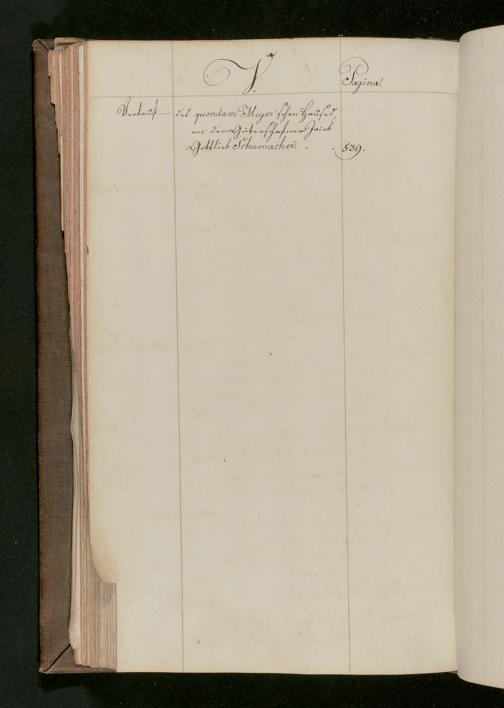 V.
Pagina.
Verkauf des quondam Meyer'schen Hauses
an den Güterschaffner Jacob
Gottlieb Schumacher. . . 539.